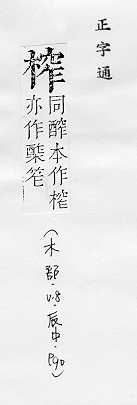 正字通
榨
同醡本作榨
亦作䪥笮
(木部·v.8·辰中·P.90)